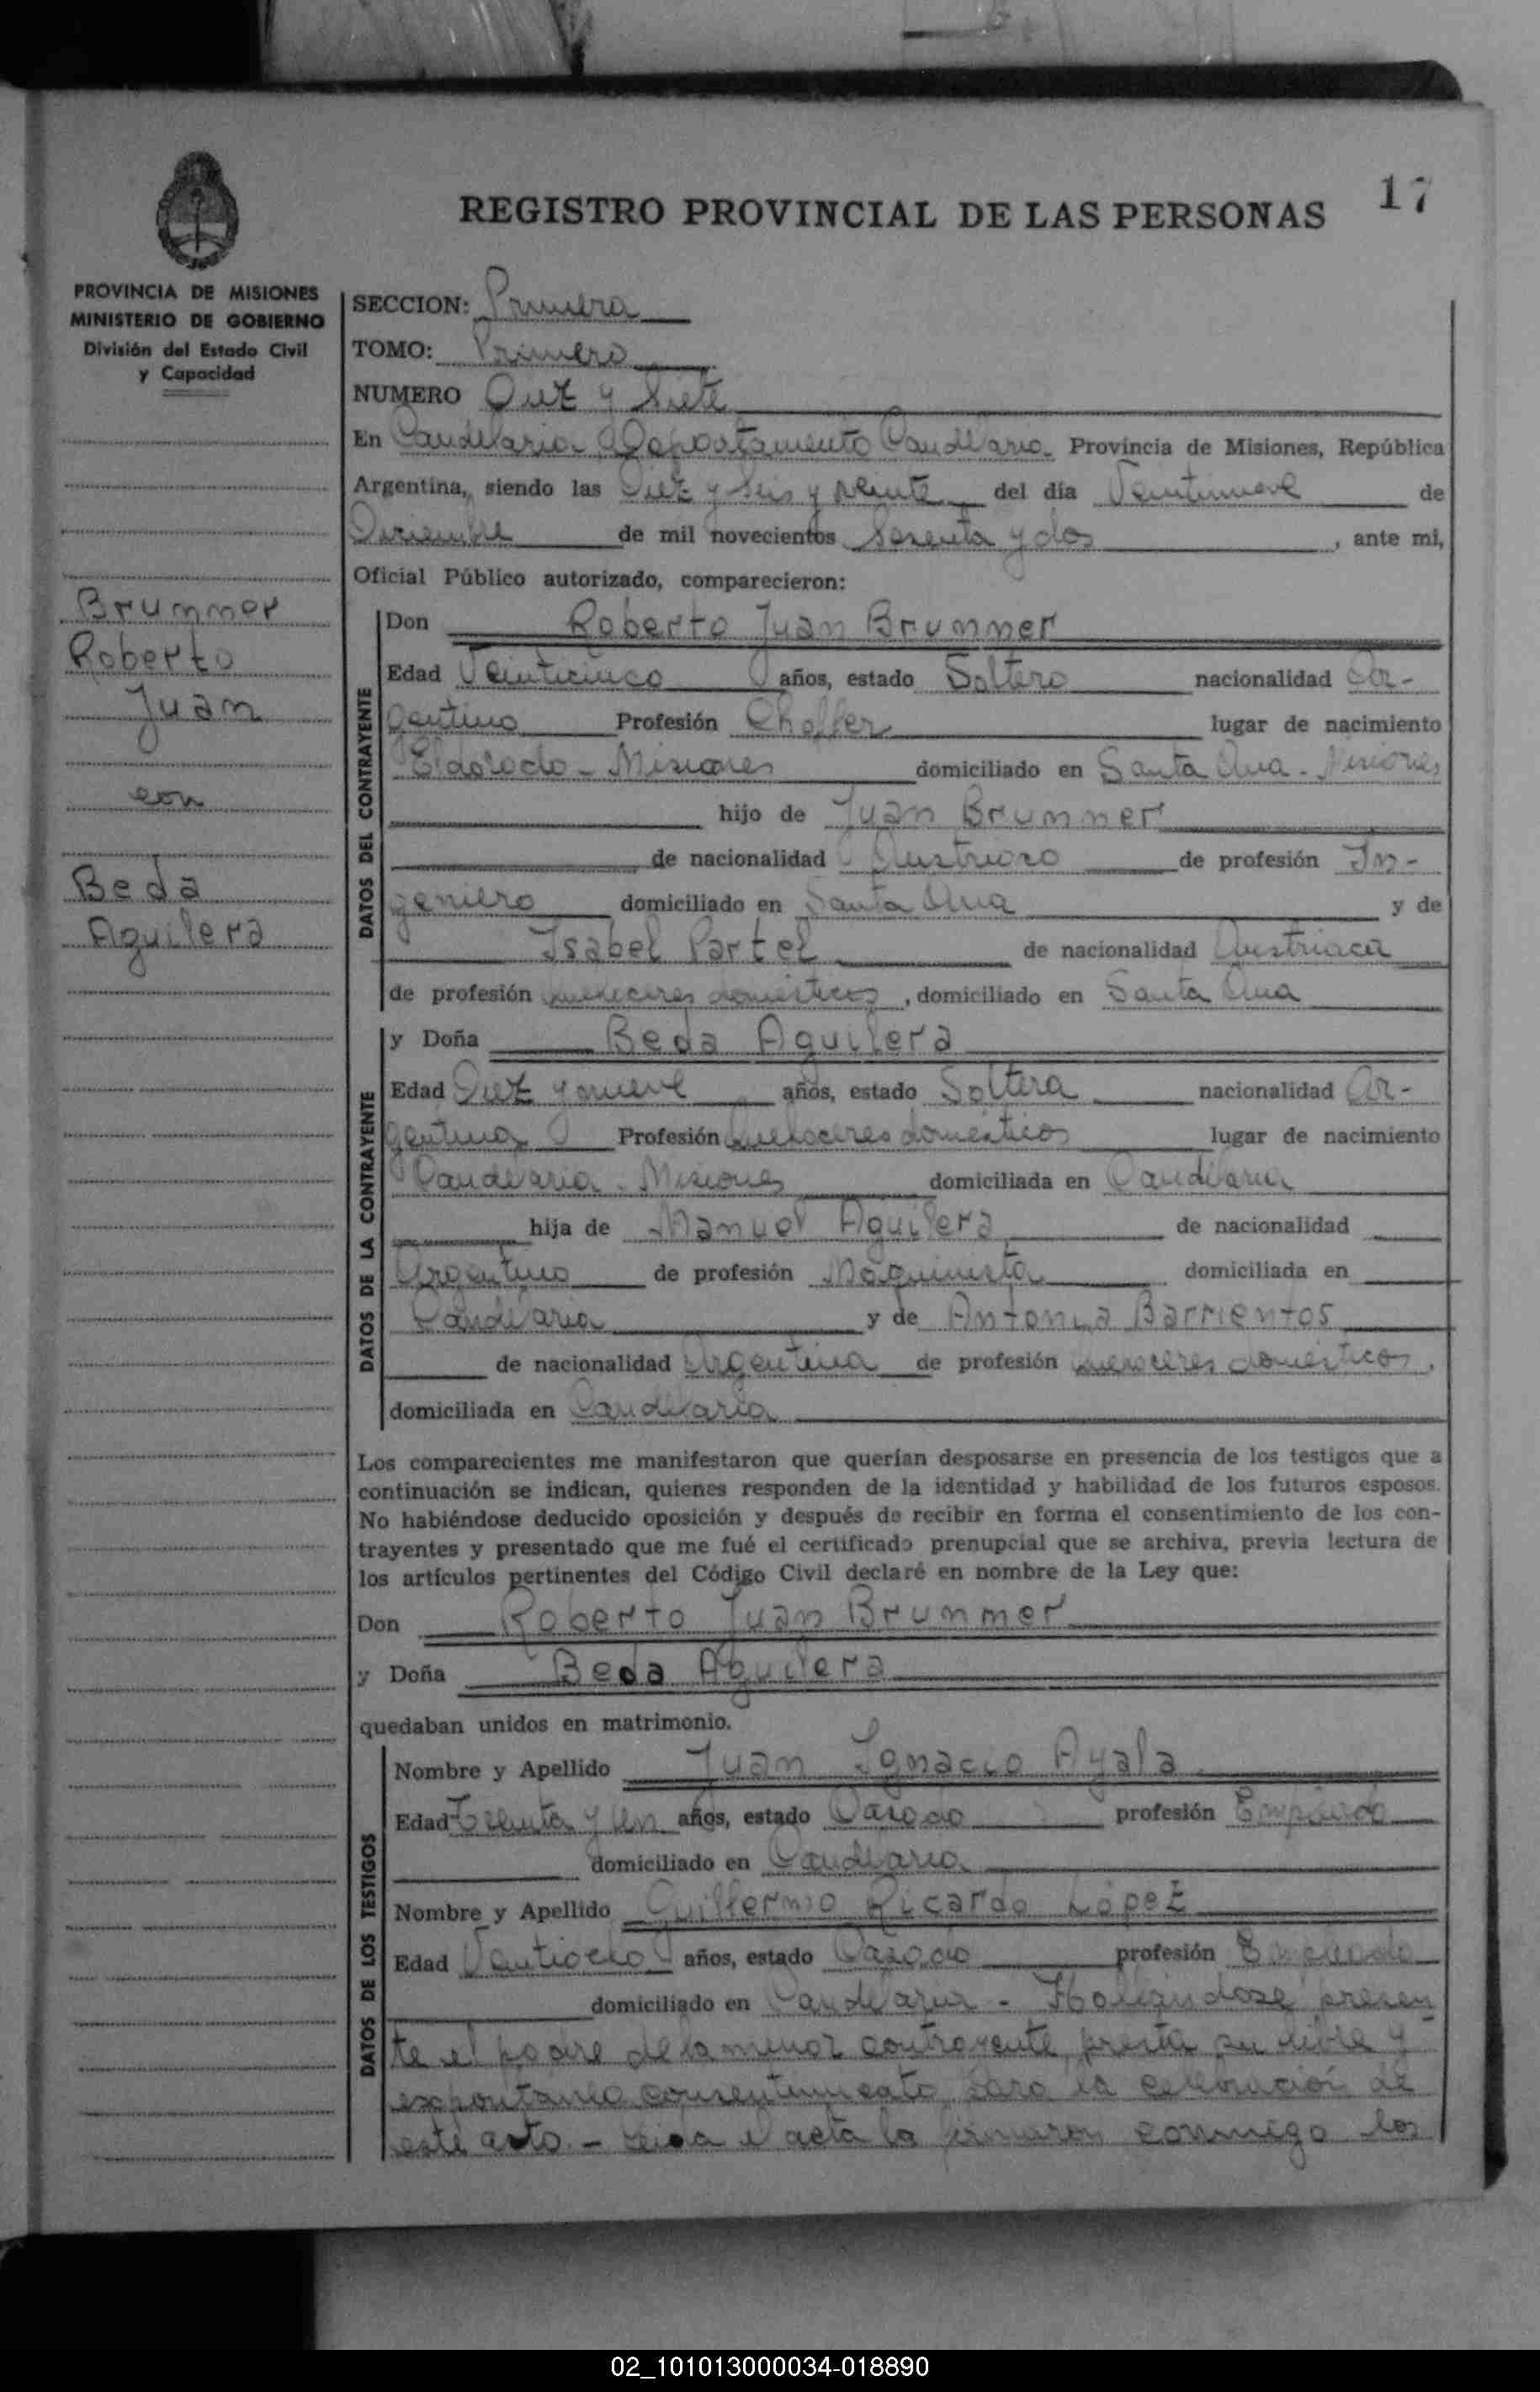 17
REGISTRO PROVINCIAL DE LAS PERSONAS
PROVINCIA DE MISIONES
MINISTERIO DE GOBIERNO
División del Estado Civil
y Capacidad
Brummer
Roberto
Juan
con
Beda
Aguilera
SECCION: Primera
TOMO: Primero
NUMERO Diez y Siete
En Candelaria Departamento Candelaria Provincia de Misiones, República
Argentina, siendo las Diez y seis y veinte del día Veintinueve de
Diciembre de mil novecientos Sesenta y dos, ante mi,
Oficial Público autorizado, comparecieron:
DATOS DEL CONTRAYENTE
Don Roberto Juan Brummer
Edad Veinticinco años, estado Soltero nacionalidad Ar-
gentino Profesión Choffer lugar de nacimiento
Eldorado - Misiones domiciliado en Santa Ana - Misiones
hijo de Juan Brummer
de nacionalidad Austriaco de profesión In-
geniero domiciliado en Santa Ana y de
Isabel Partel de nacionalidad Austriaca
de profesión quehaceres domésticos, domiciliado en Santa Ana
DATOS DE LA CONTRAYENTE
y Doña Beda Aguilera
Edad Diez y nueve años, estado Soltera nacionalidad Ar-
gentina Profesión quehaceres domésticos lugar de nacimiento
Candelaria - Misiones domiciliada en Candelaria
hija de Manuel Aguilera de nacionalidad
Argentino de profesión Maquinista domiciliada en
Candelaria y de Antonia Barrientos
de nacionalidad Argentina de profesión quehaceres domésticos,
domiciliada en Candelaria
Los comparecientes me manifestaron que querían desposarse en presencia de los testigos que a
continuación se indican, quienes responden de la identidad y habilidad de los futuros esposos.
No habiéndose deducido oposición y después de recibir en forma el consentimiento de los con-
trayentes y presentado que me fué el certificado prenupcial que se archiva, previa lectura de
los artículos pertinentes del Código Civil declaré en nombre de la Ley que:
Don Roberto Juan Brummer
y Doña Beda Aguilera
quedaban unidos en matrimonio.
DATOS DE LOS TESTIGOS
Nombre y Apellido Juan Ignacio Ayala
Edad Treinta y Un años, estado Casado profesión Empleado
domiciliado en Candelaria
Nombre y Apellido Guillermo Ricardo López
Edad Veintiocho años, estado Casado profesión Empleado
domiciliado en Candelaria - Hallándose presen
te el padre de la menor contrayente, presta su libre y
expontaneo consentimiento para la celebración de
este acto. - Leida el acta la firmaron conmigo los
02_101013000034-018890